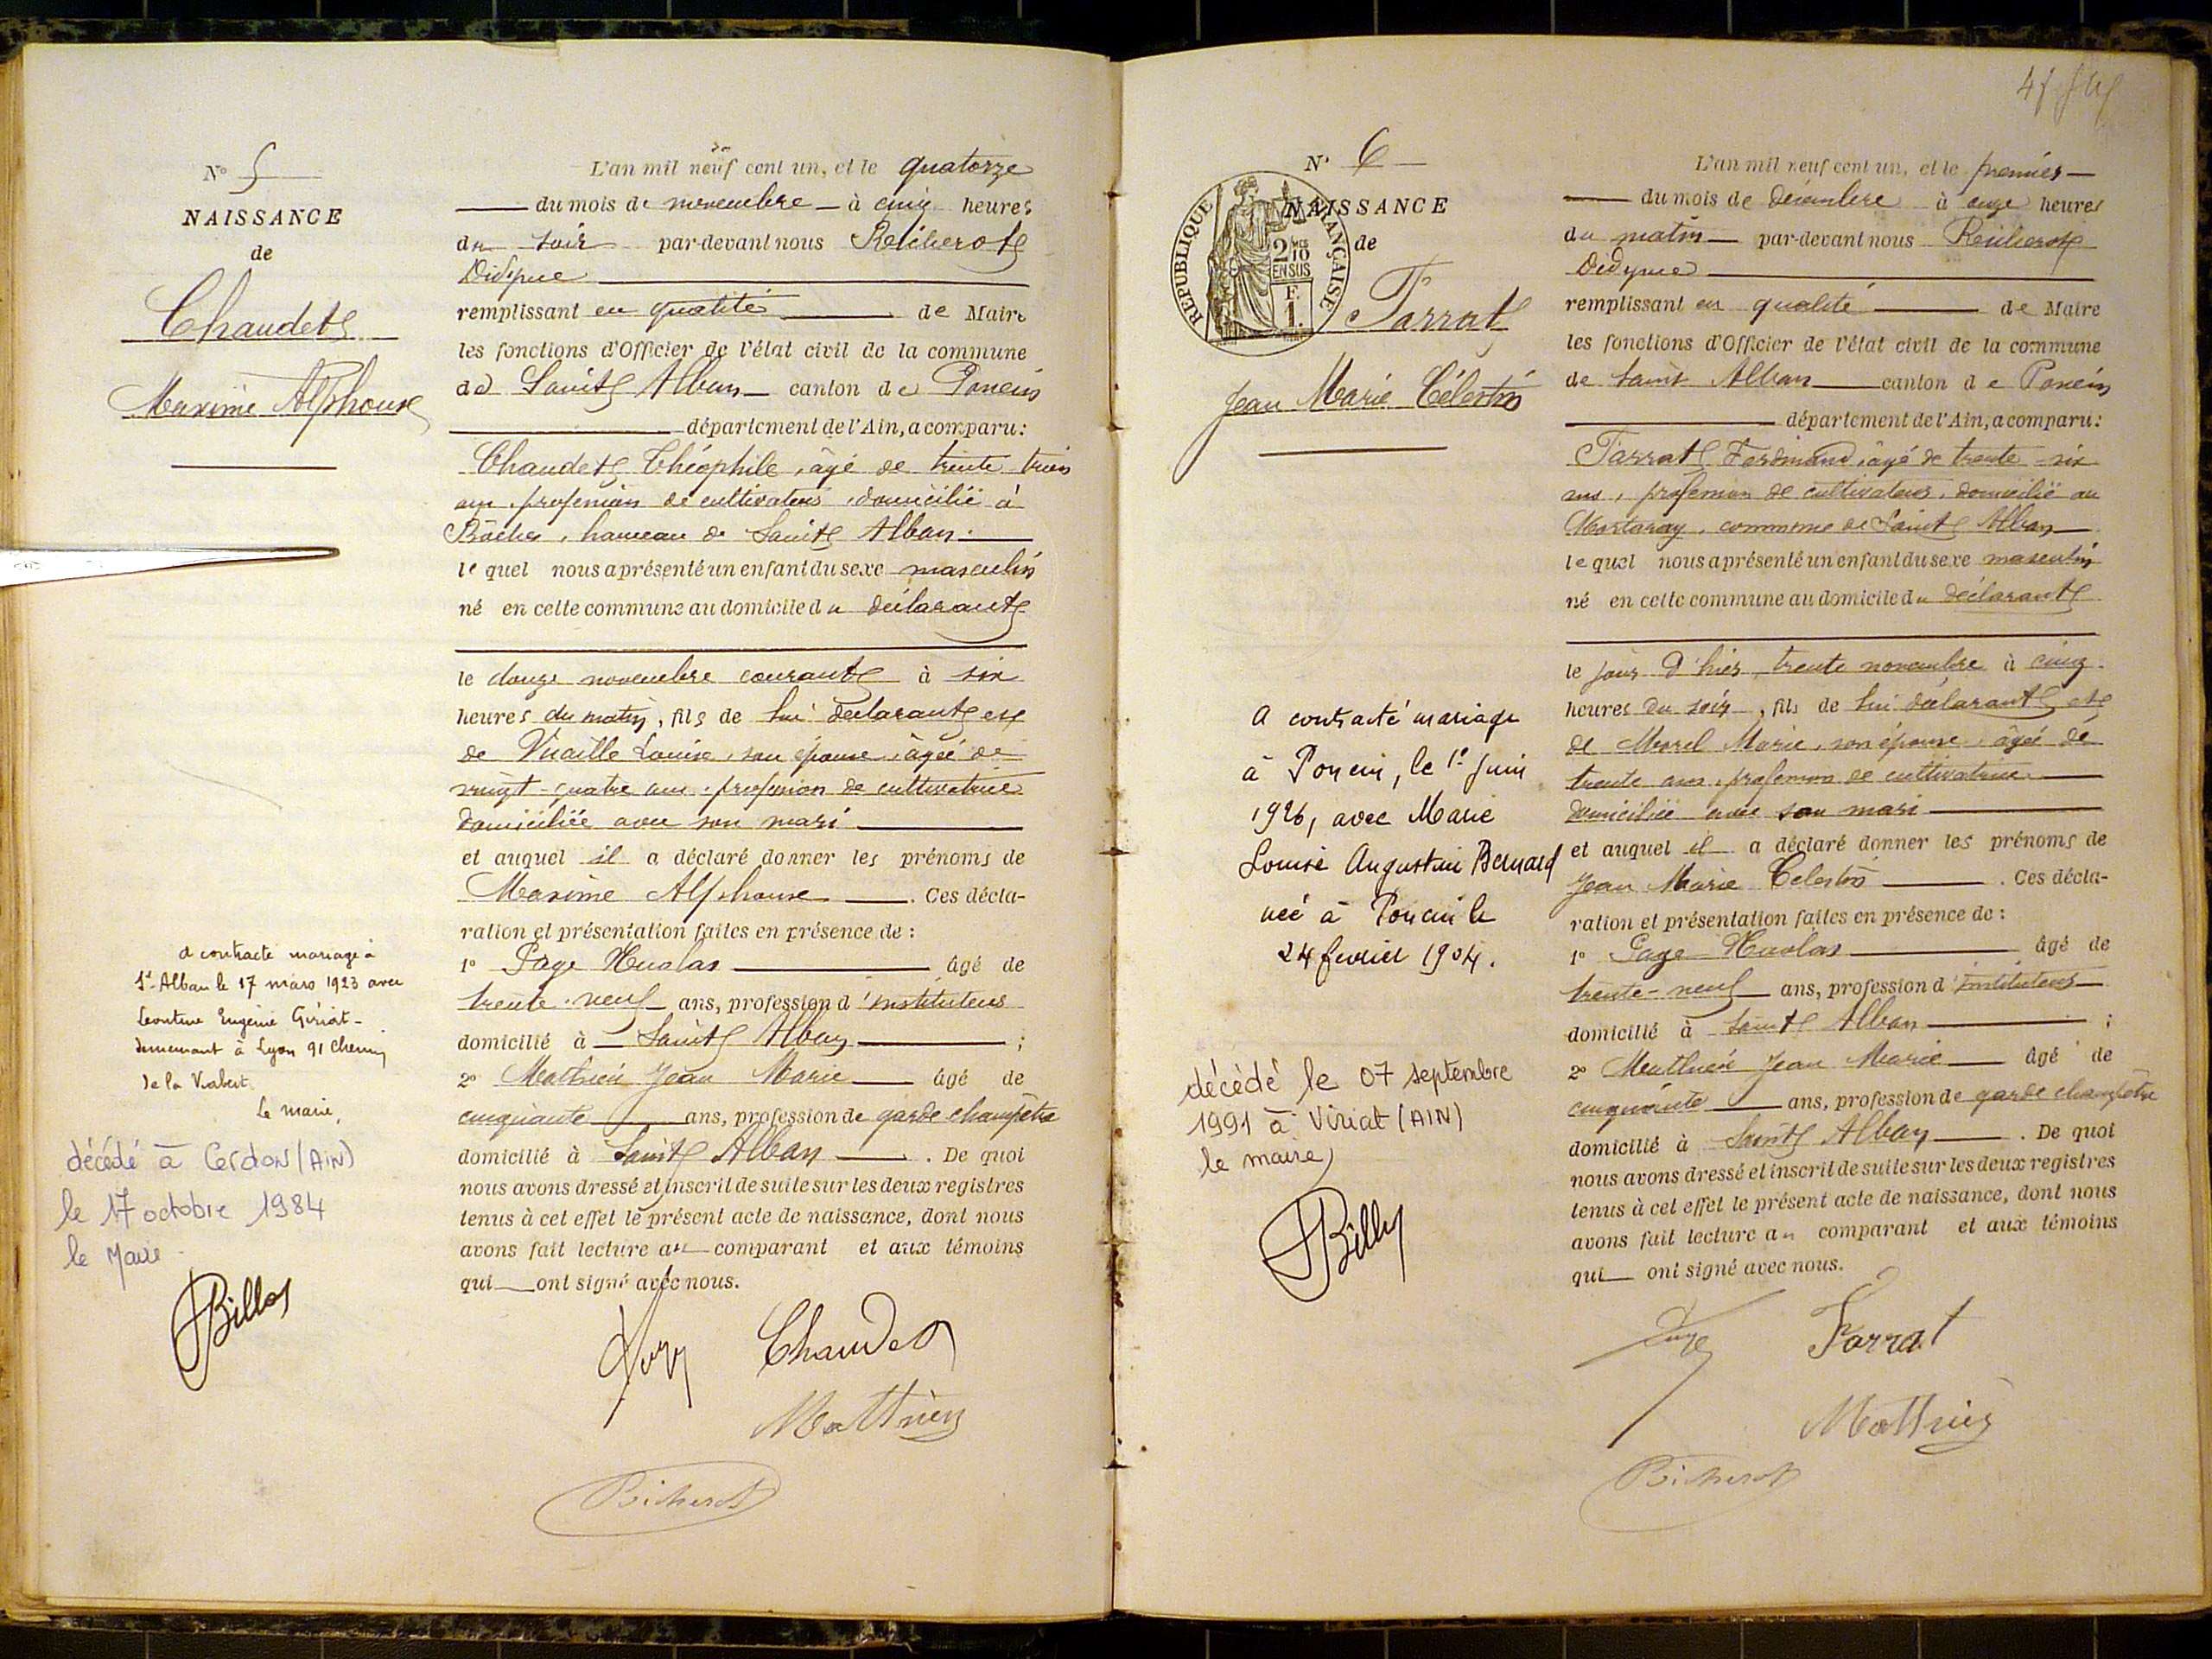 N° 5
NAISSANCE
de
Chaudet
Maxime Alphonse
L'an mil neuf cent un, et le quatorze
du mois de novembre à cinq heures
du soir par-devant nous
Didyme
remplissant en qualité de Maire
les fonctions d'Officier de l'état civil de la commune
de Saint Alban canton de Poncin
département de l'Ain, a comparu :
Chaudet Théophile, âgé de trente trois
ans, profession de cultivateur, domicilié à
hameau de Saint Alban.
le quel nous a présenté un enfant du sexe masculin
né en cette commune au domicile du déclarant
le douze novembre courant à six
heures du matin, fils de lui déclarant et
de Louise, son épouse, âgée de
vingt-quatre ans, profession de cultivatrice
domiciliée avec son mari
et auquel il a déclaré donner les prénoms de
Maxime Alphonse. Ces décla-
ration et présentation faites en présence de :
1° Page Nicolas âgé de
trente-neuf ans, profession d'instituteur
domicilié à Saint Alban ;
2° Mathieu Jean Marie âgé de
cinquante ans, profession de garde champêtre
domicilié à Saint Alban. De quoi
nous avons dressé et inscrit de suite sur les deux registres
tenus à cet effet le présent acte de naissance, dont nous
avons fait lecture au comparant et aux témoins
qui ont signé avec nous.
Page Chaudet
Mathieu
a contracté mariage à
St-Alban le 17 mars 1923 avec
Léontine Eugénie Giriat-
demeurant à Lyon 91 chemin
de la
Le maire,
décédé à Cerdon (AIN)
le 17 octobre 1984
le Maire
N° 6
NAISSANCE
de
RÉPUBLIQUE FRANÇAISE
2/10
EN SUS
F.
1.
Tarrat
Jean Marie Célestin
L'an mil neuf cent un, et le premier
du mois de décembre à onze heures
du matin par-devant nous
Didyme
remplissant en qualité de Maire
les fonctions d'Officier de l'état civil de la commune
de Saint Alban canton de Poncin
département de l'Ain, a comparu :
Tarrat Ferdinand, âgé de trente-six
ans, profession de cultivateur, domicilié au
Mortaray, commune de Saint Alban
le quel nous a présenté un enfant du sexe masculin
né en cette commune au domicile du déclarant
le jour d'hier, trente novembre à cinq
heures du soir, fils de lui déclarant et
de Morel Marie, son épouse, âgée de
trente ans, profession de cultivatrice
domiciliée avec son mari
et auquel il a déclaré donner les prénoms de
Jean Marie Celestin. Ces décla-
ration et présentation faites en présence de :
1° Page Nicolas âgé de
trente-neuf ans, profession d'instituteur
domicilié à Saint Alban ;
2° Mathieu Jean Marie âgé de
cinquante ans, profession de garde champêtre
domicilié à Saint Alban. De quoi
nous avons dressé et inscrit de suite sur les deux registres
tenus à cet effet le présent acte de naissance, dont nous
avons fait lecture au comparant et aux témoins
qui ont signé avec nous.
Page Tarrat
Mathieu
A contracté mariage
à Poncin, le 1er Juin
1926, avec Marie
Louise Augustine Bernard
née à Poncin le
24 février 1904.
décédé le 07 septembre
1991 à Viriat (AIN)
le maire,